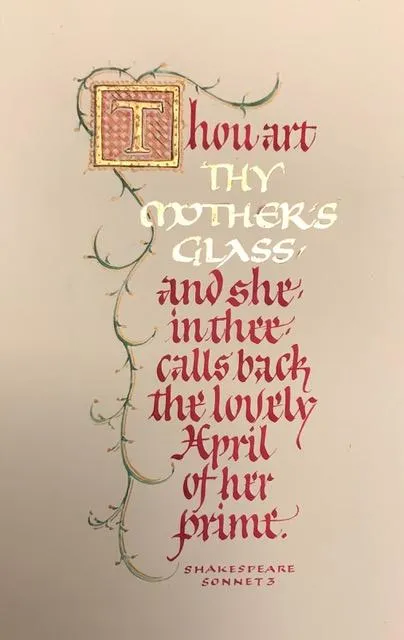 Thou art
THY
MOTHER'S
GLASS,
and she,
in thee,
calls back
the lovely
April
of her
prime.
SHAKESPEARE
SONNET 3